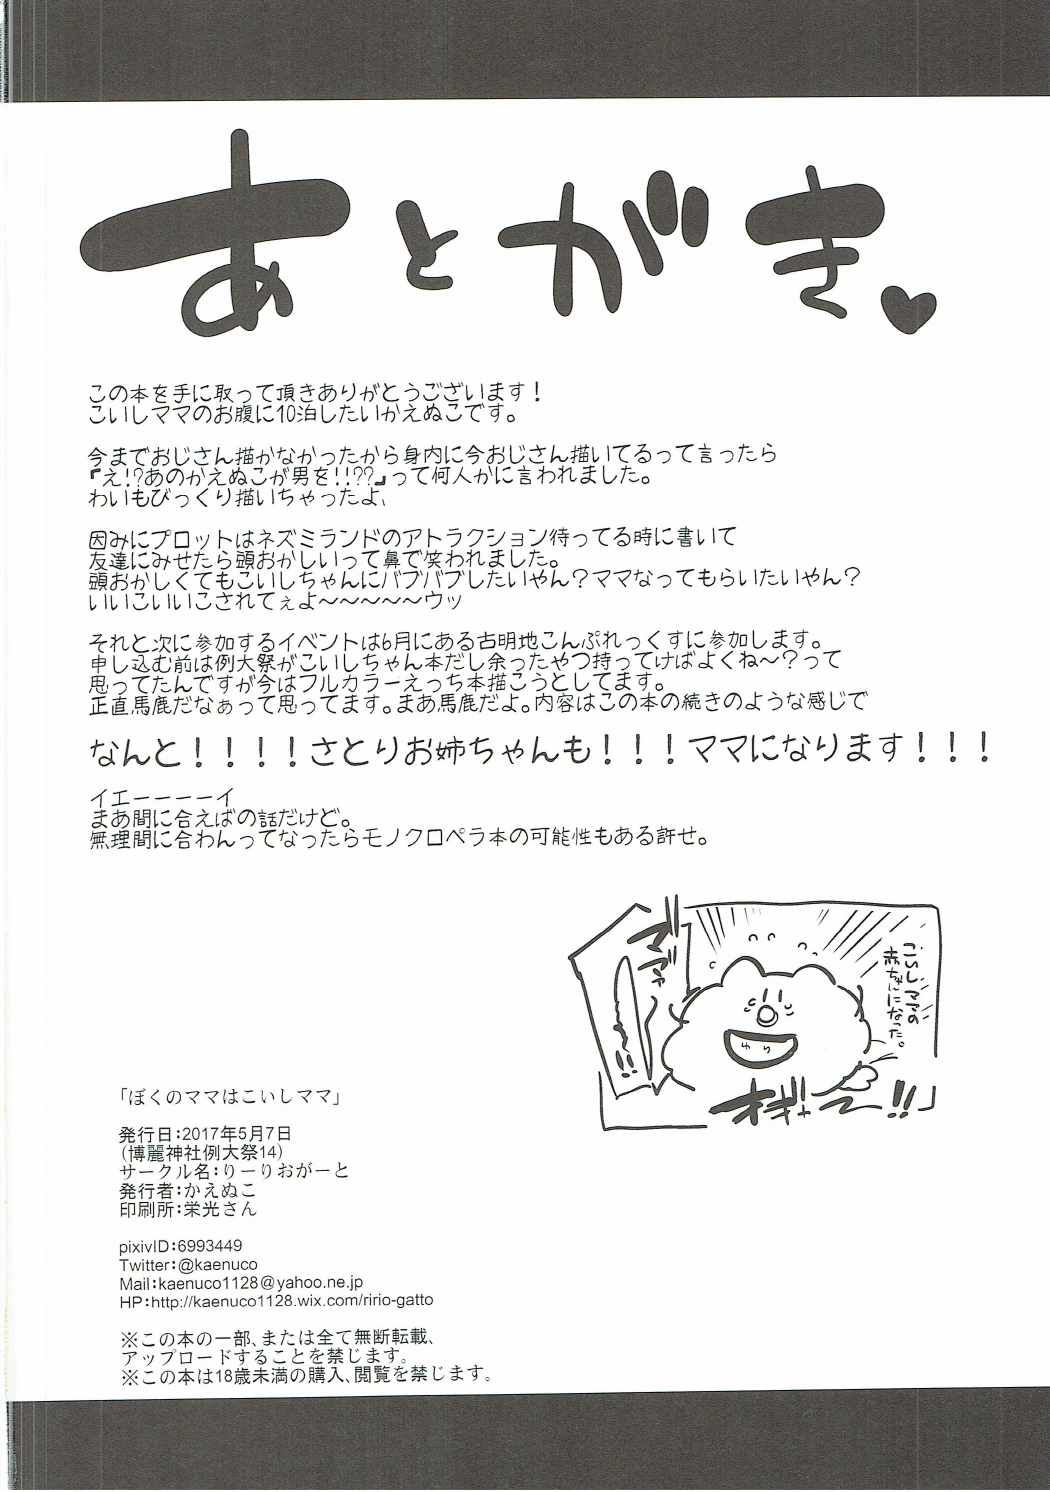 あとがき♥
この本を手に取って頂きありがとうございます！
こいしママのお腹に10泊したいかえぬこです。
今までおじさん描かなかったから身内に今おじさん描いてるって言ったら
『え!?あのかえぬこが男を!!??』って何人かに言われました。
わいもびっくり描いちゃったよ、
因みにプロットはネズミランドのアトラクション待ってる時に書いて
友達にみせたら頭おかしいって鼻で笑われました。
頭おかしくてもこいしちゃんにバブバブしたいやん？ママなってもらいたいやん？
いいこいいこされてぇよ～～～～～ウッ
それと次に参加するイベントは6月にある古明地こんぷれっくすに参加します。
申し込む前は例大祭がこいしちゃん本だし余ったやつ持ってけばよくね～？って
思ってたんですが今はフルカラーえっち本描こうとしてます。
正直馬鹿だなぁって思ってます。まあ馬鹿だよ。内容はこの本の続きのような感じで
なんと！！！！さとりお姉ちゃんも！！！ママになります！！！
イエーーーーイ
まあ間に合えばの話だけど。
無理間に合わんってなったらモノクロペラ本の可能性もある許せ。
こいしママの
赤ちゃんになった。
マ゛マ゛ァ
ーー!!
ゆら
オギャー!!
「ぼくのママはこいしママ」
発行日：2017年5月7日
(博麗神社例大祭14)
サークル名：りーりおがーと
発行者：かえぬこ
印刷所：栄光さん
pixivID：6993449
Twitter：@kaenuco
Mail：kaenuco1128@yahoo.ne.jp
HP：http://kaenuco1128.wix.com/ririo-gatto
※この本の一部、または全て無断転載、
アップロードすることを禁じます。
※この本は18歳未満の購入、閲覧を禁じます。